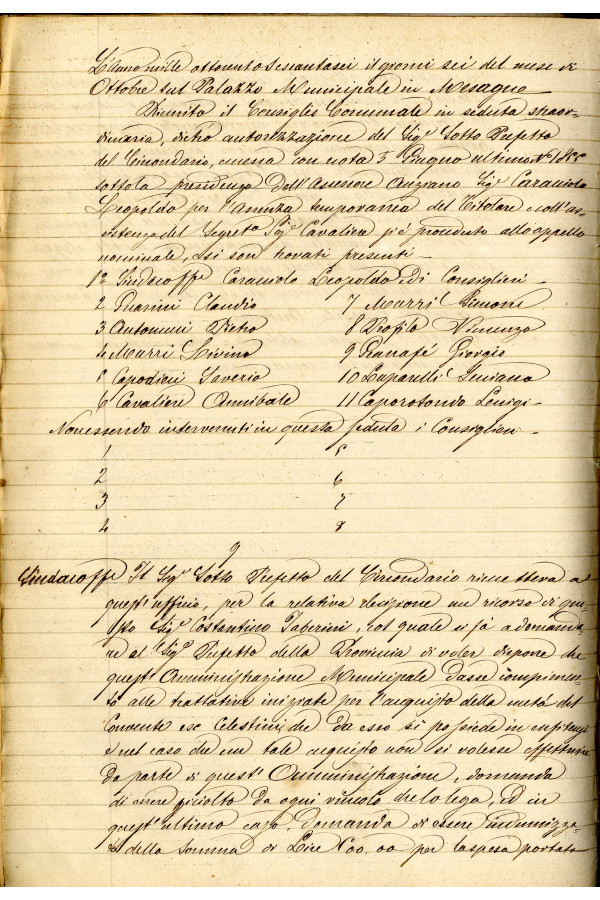 L'Anno mille ottocento sessantasei il giorno sei del mese di
Ottobre sul Palazzo Municipale in Mesagne
Riunito il Consiglio Comunale in seduta straor-
dinaria, dietro autorizzazione del Sigr Sotto Prefetto
del Circondario, emessa con nota 3 Giugno ultimo No
sottola presidenza dell'Assessore Anziano Sigr Caraviolo
Leopoldo per l'assenza temporanea del Titolare coll'as-
sistenza del Segreto Sigr Cavaliere si è proceduto allo appello
nominale, e si son trovati presenti
1o Sindaco ff Caraviolo Leopoldo Edi Consiglieri
2 Guarini Claudio 7 Murri Simone
3 Antonucci Pietro 8 Profilo Vincenzo
4 Murri Livino 9 Granafé Giorgio
5 Capodieci Saverio 10 Luparelli Luciano
6 Cavaliere Annibale 11 Caporotondo Luigi
Non essendo intervenuti in questa seduta i Consiglieri
1 5
2 6
3 7
4 8
Sindaco ff Il Sigr Sotto Prefetto del Circondario rimetteva a
quest'ufficio, per la relativa decisione un ricorso di que-
sto Sigr Costantino Taberini, col quale si fà a domanda-
re al Sigr Prefetto della Provincia di voler disporre che
quest'Amministrazione Municipale dasse compimen-
to alle trattative iniziate per l'acquisto della metá del
Convento ex Celestini che da esso si possiede in enfiteusi
e nel caso che un tale acquisto non si volesse effettuire
da parte di quest'Amministrazione, domanda
di essere sciolto da ogni vincolo che lo lega, ed in
quest'ultimo caso, domanda di essere indennizza-
to della somma di Lire per la spesa portata